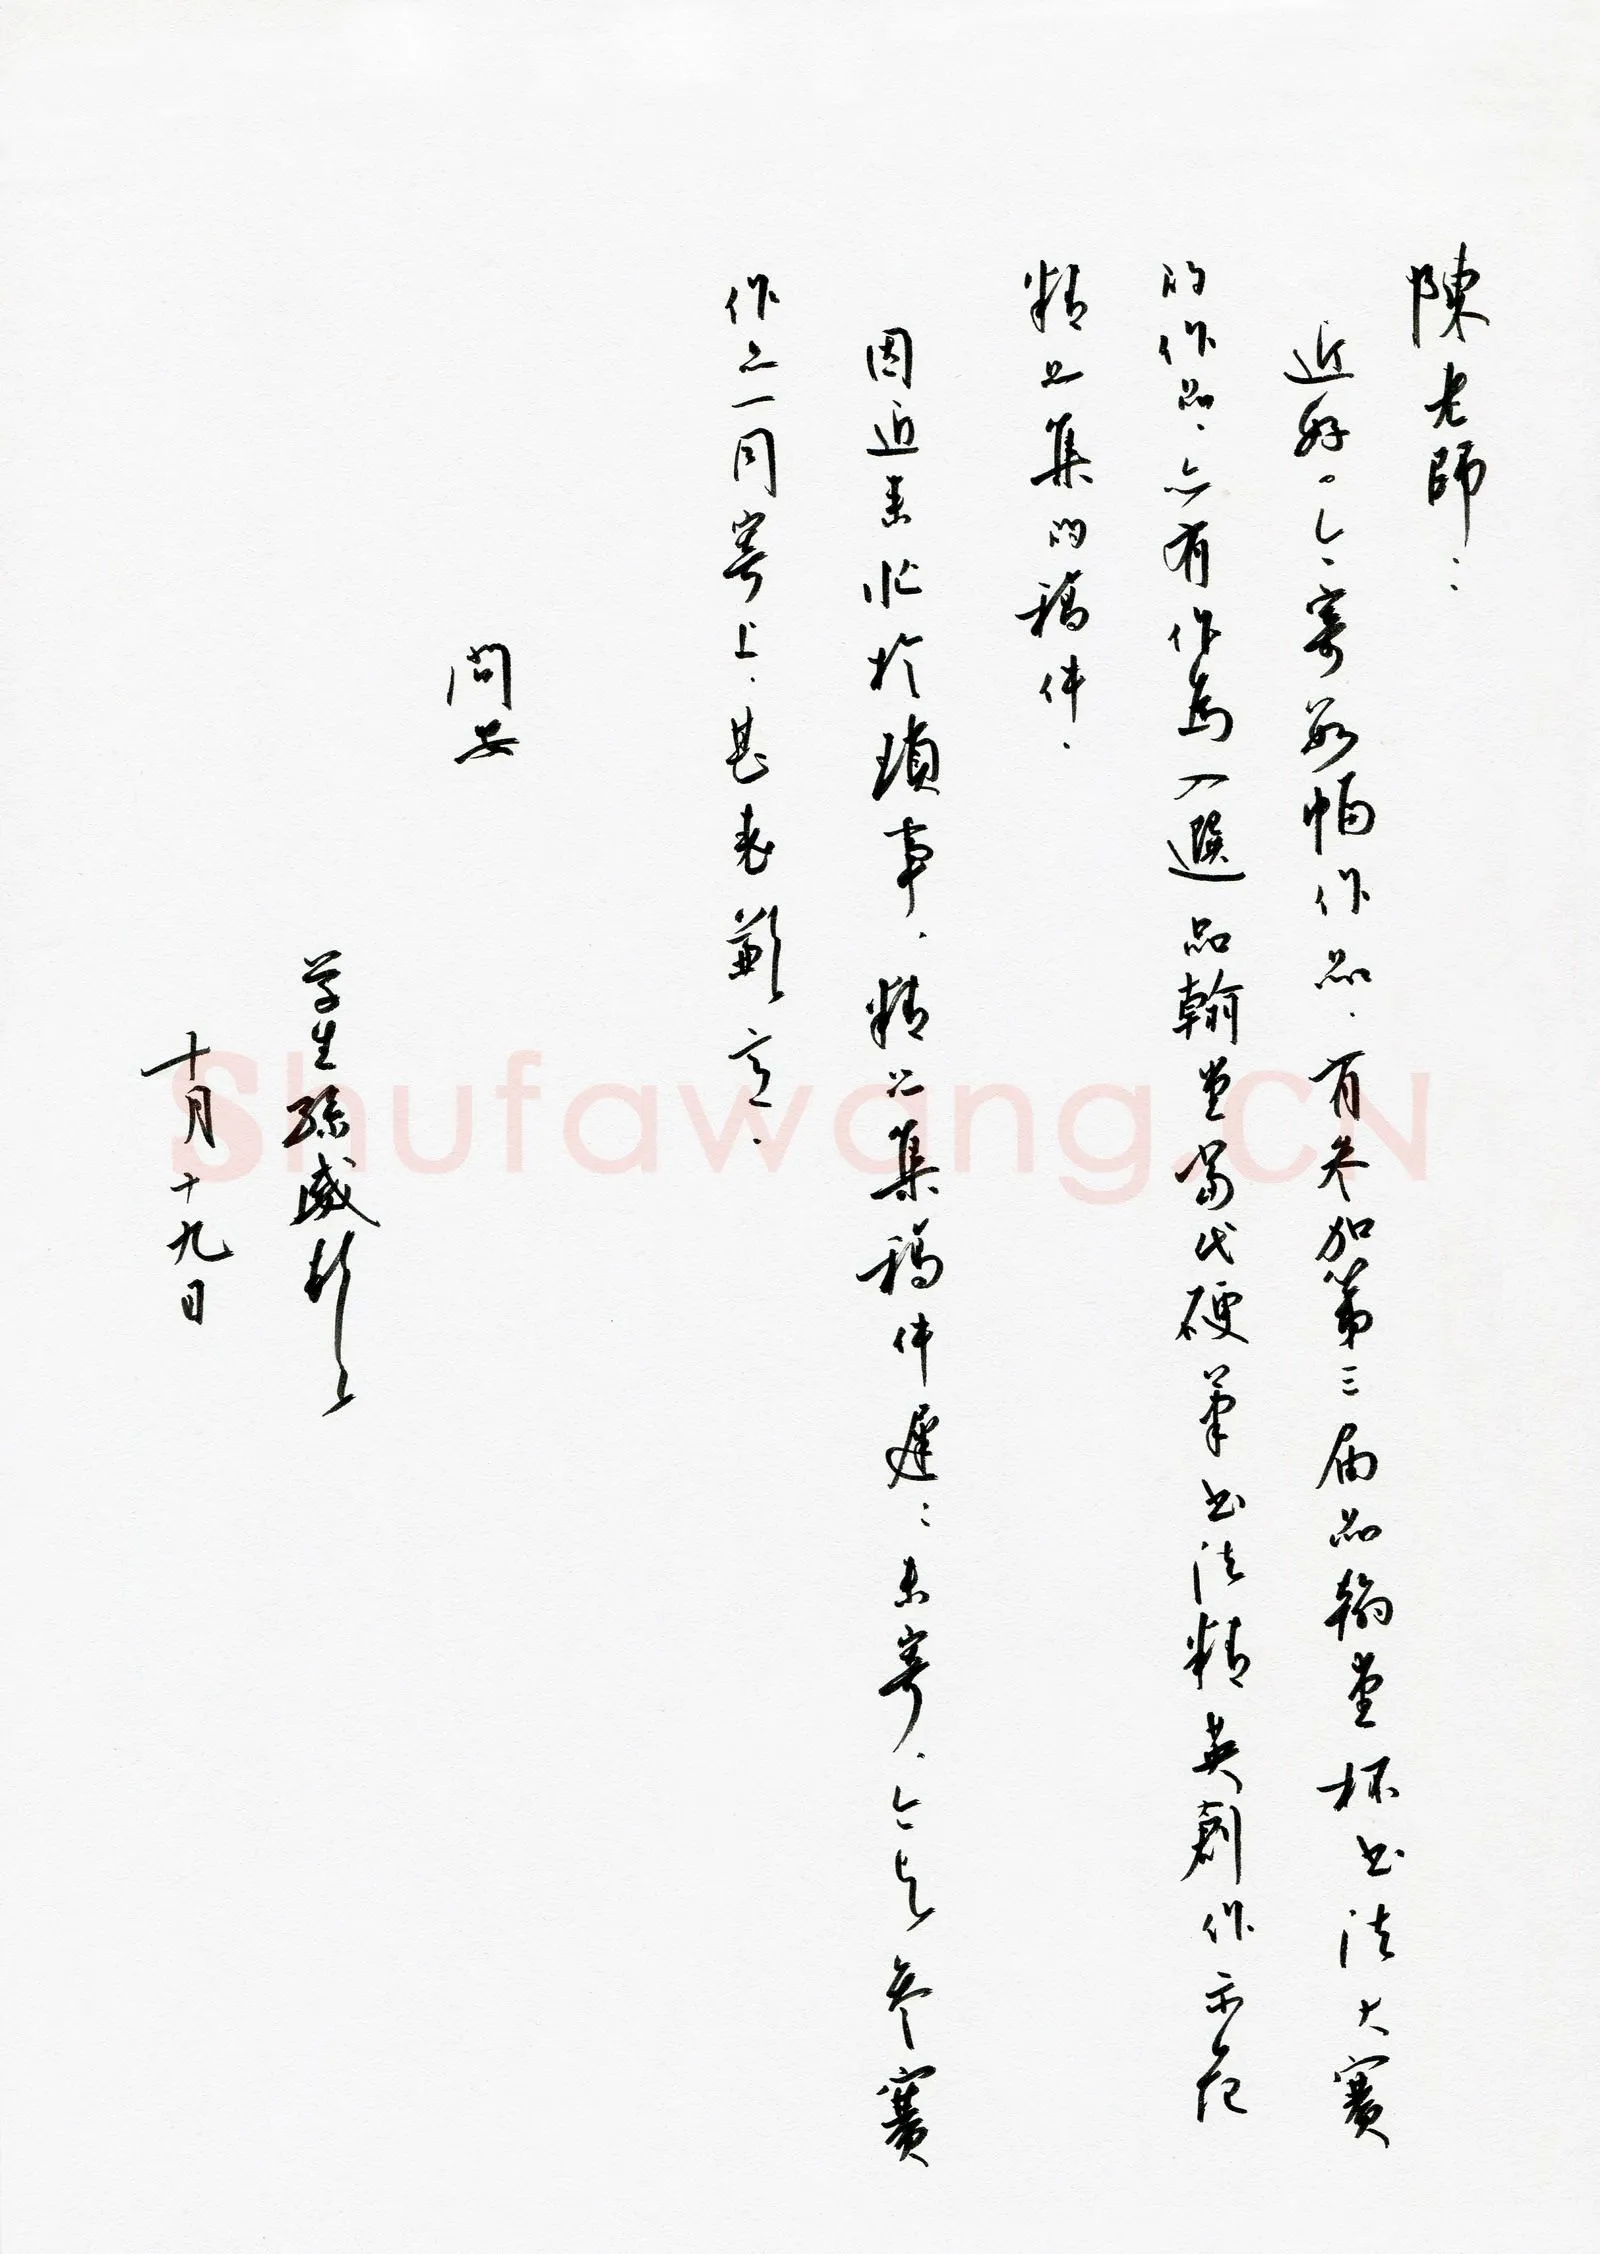 陳老師：
近好。今寄数幅作品，有参加第三届品翰堂杯书法大賽
的作品，亦有作為入選品翰堂當代硬筆书法精英創作示范
精品集的稿件。
因近来忙於瑣事，精品集稿件遲遲未寄，今与参賽
作品一同寄上，甚表歉意。
問安
学生孫威
十月十九日
Shufawang.CN